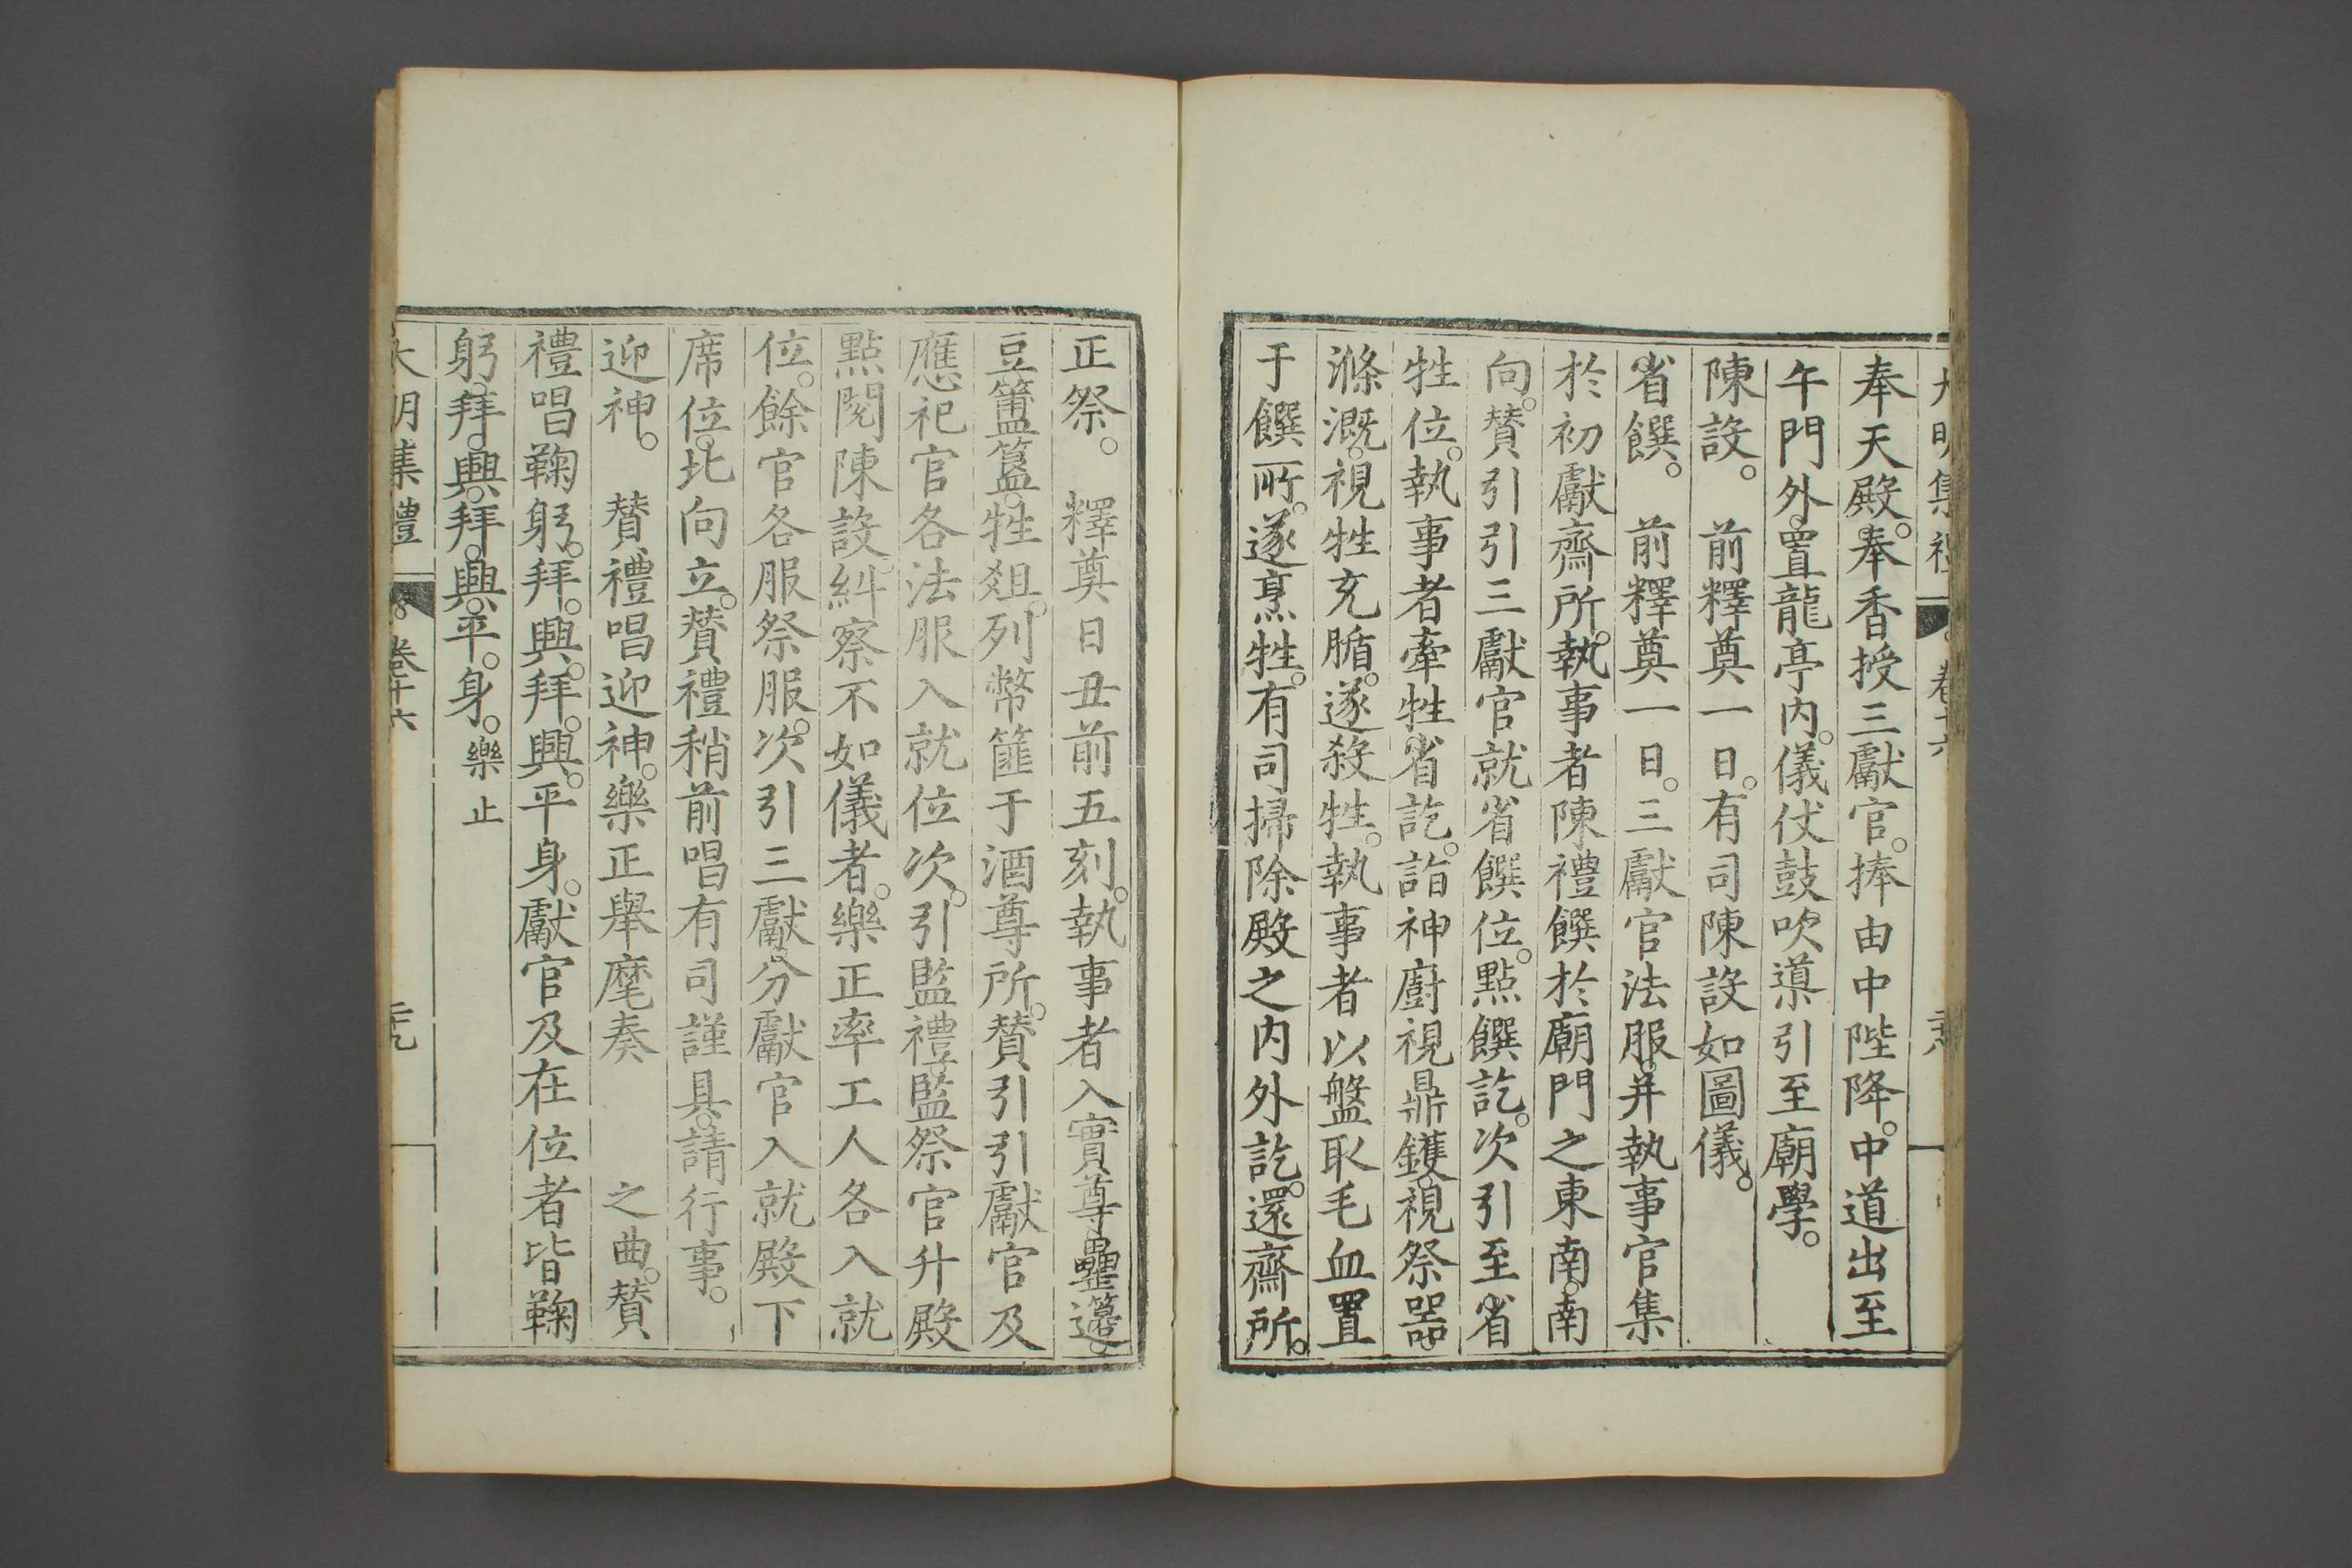 大明集禮 卷十六 二十八
奉天殿。奉香授三獻官。捧由中陛降。中道出至
午門外。置龍亭內。儀仗鼓吹導引至廟學。
陳設。 前釋奠一日。有司陳設如圖儀。
省饌。 前釋奠一日。三獻官法服。并執事官集
於初獻齋所。執事者陳禮饌於廟門之東南。南
向。贊引引三獻官就省饌位。點饌訖。次引至省
牲位。執事者牽牲省訖。詣神廚視鼎鑊。視祭器。
滌溉。視牲充腯。遂殺牲。執事者以盤取毛血置
于饌所。遂烹牲。有司掃除殿之內外訖。還齋所。
正祭。 釋奠日丑前五刻。執事者入實尊罍籩。
豆簠簋。牲爼。列幣篚于酒尊所。贊引引獻官及
應祀官各法服入就位次。引監禮監祭官升殿
點閱陳設。糾察不如儀者。樂正率工人各入就
位。餘官各服祭服。次引三獻。分獻官入就殿下
席位。北向立。贊禮稍前唱有司謹具。請行事。
迎神。 贊禮唱迎神。樂正舉麾奏 之曲。贊
禮唱鞠躬。拜。興。拜。興。平身。獻官及在位者皆鞠
躬。拜。興。拜。興。平。身。樂止
大明集禮 卷十六 二十九